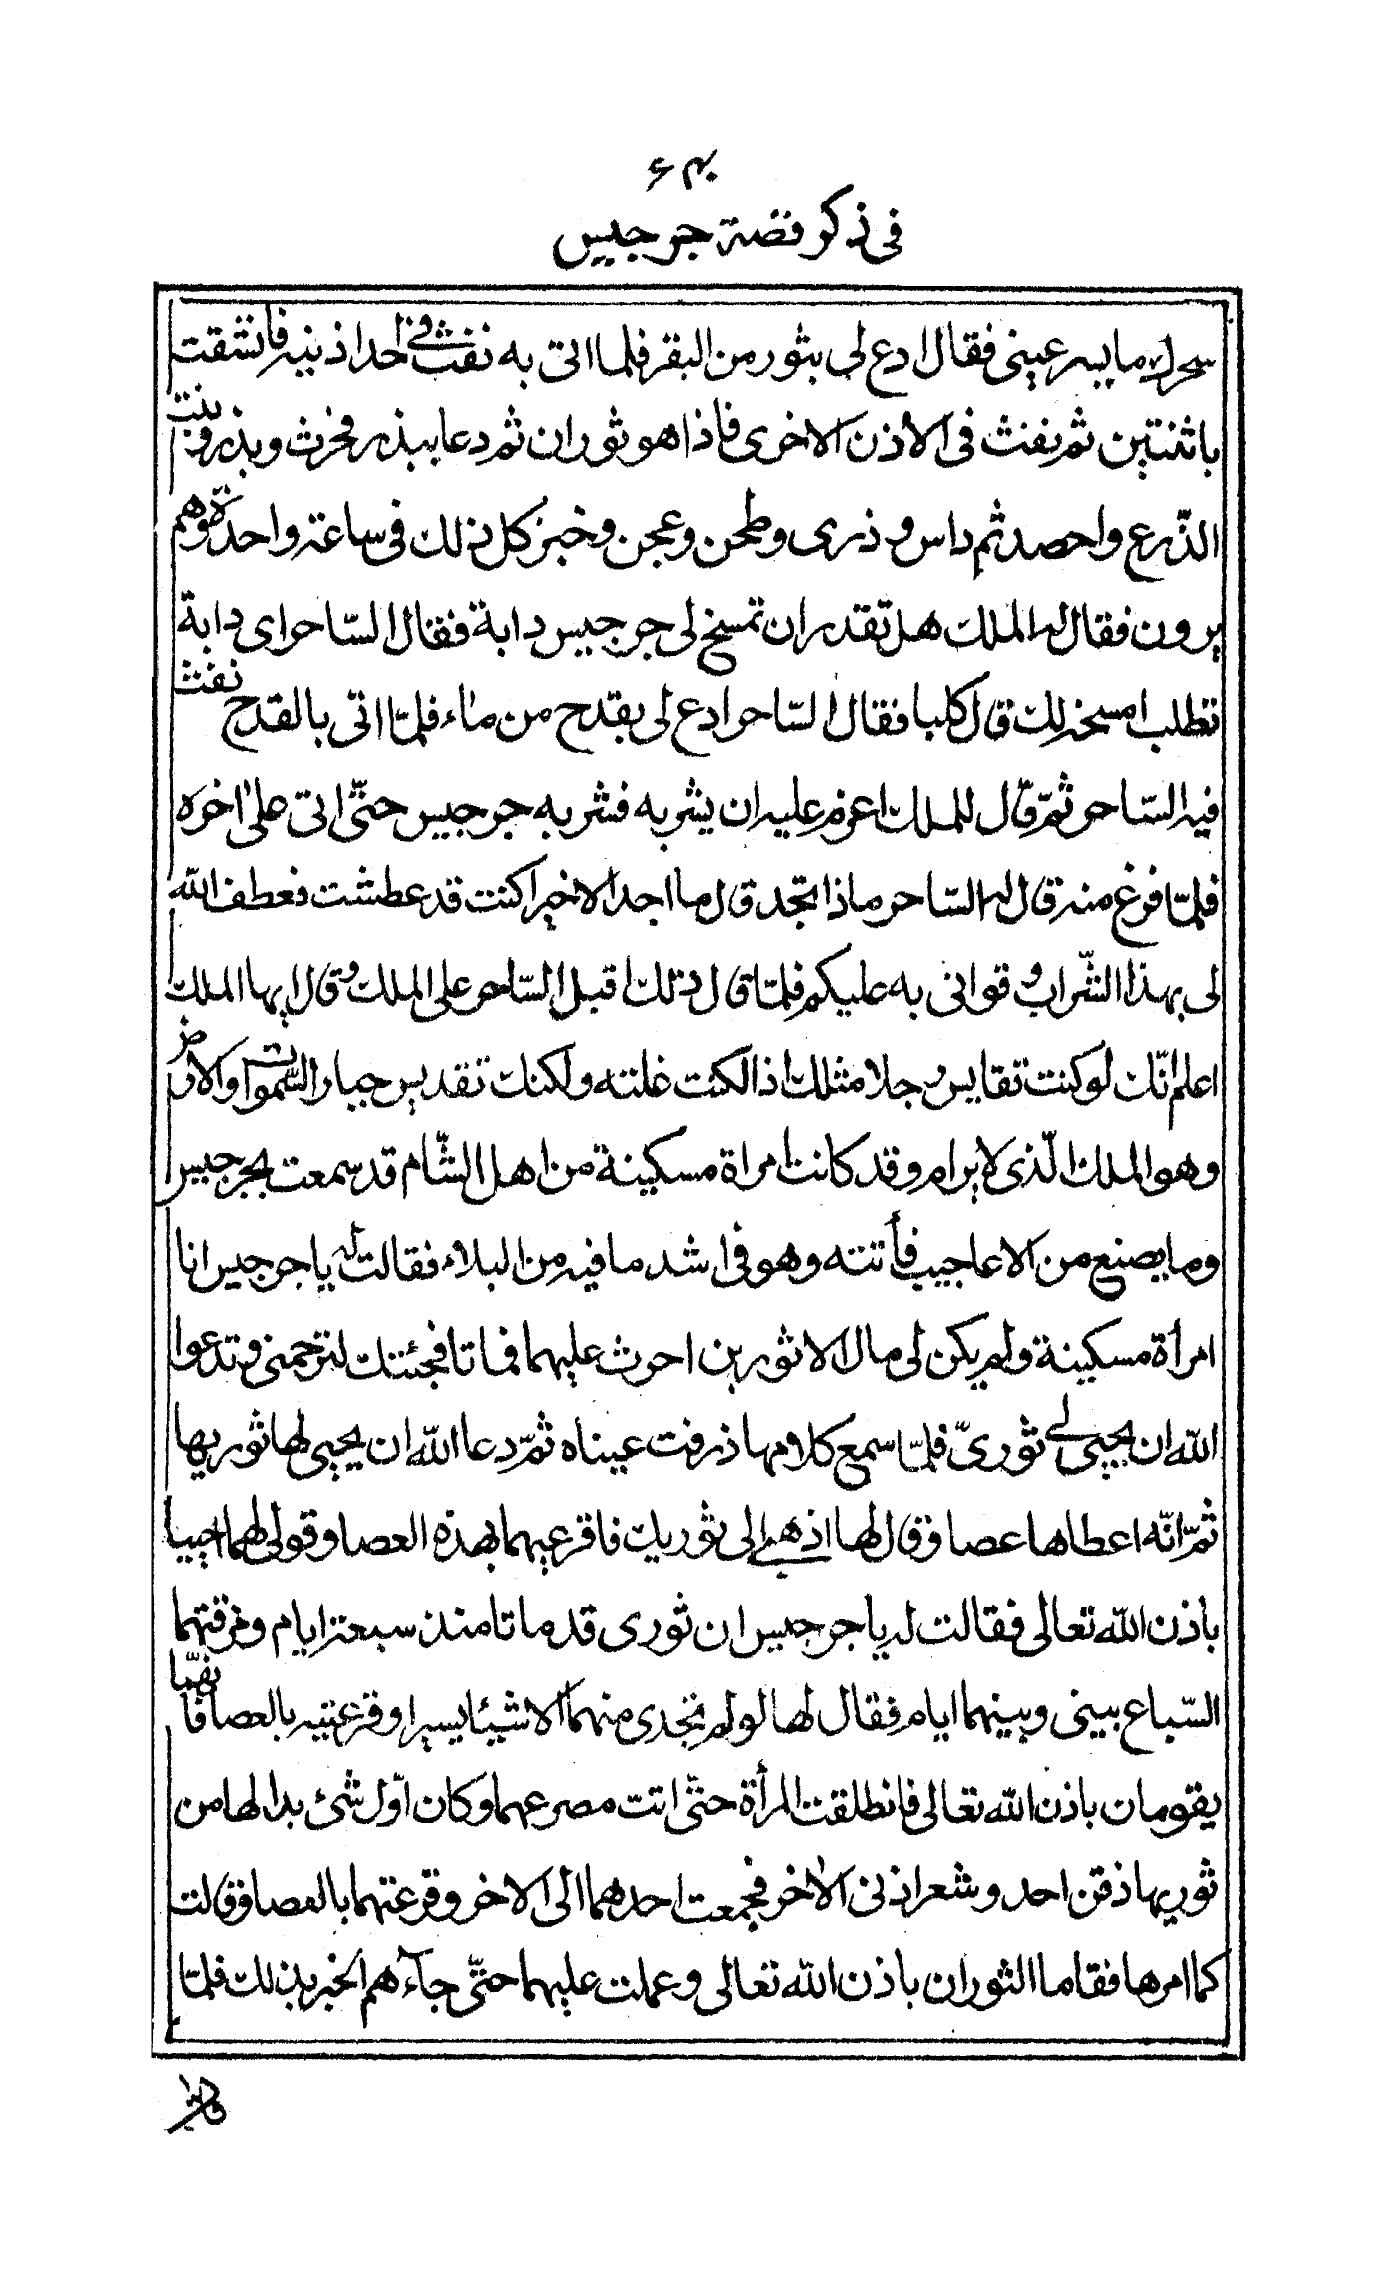 ٦٠٤
فى ذكر قصة جرجيس
سحرك ما يسر عينى فقال ادع لى بثور من البقر فلما اتى به نفث فى احد اذنيه فانشقت
باثنتين ثم نفث فى الأذن الاخرى فاذا هو ثوران ثم دعا ببذر فحرث وبذر ونبت
الزّرع واحصد ثم داس و ذرى وطحن وعجن وخبز كل ذلك فى ساعة واحدة وهم
يرون فقال له الملك هل تقدر ان تمسخ لى جرجيس دابة فقال السّاحر اى دابة
تطلب امسخه لك قال كلبا فقال السّاحر ادع لى بقدح من ماء فلمّا اتى بالقدح نفث
فيه السّاحر ثمّ قال للملك اعزم عليه ان يشربه فشربه جرجيس حتّى اتى على اخره
فلمّا فرغ منه قال له السّاحر ماذا تجد قال ما اجد الا خيرا كنت قد عطشت فعطف الله
لى بهذا الشّراب و قوانى به عليكم فلمّا قال ذلك اقبل السّاحر على الملك وقال ايها الملك
اعلم انّك لو كنت تقايس رجلا مثلك اذا لكنت غلبته ولكنك تقديس جبار السّموات والارض
وهو الملك الّذى لا يرام وقد كانت امراة مسكينة من اهل الشّام قد سمعت بجرجيس
وما يصنع من الاعاجيب فأتته وهو فى اشد ما فيه من البلاء فقالت له يا جرجيس انا
امرأة مسكينة ولم يكن لى مال الا ثورين احرث عليهما فماتا فجئتك لترحمنى وتدعوا
الله ان يحيى لى ثورىّ فلمّا سمع كلامها ذرفت عيناه ثمّ دعا الله ان يحيى لها ثوريها
ثمّ انّه اعطاها عصا وقال لها اذهبى الى ثوريك فاقرعيهما بهذه العصا وقولى لهما احييا
باذن الله تعالى فقالت له يا جرجيس ان ثورى قد ماتا منذ سبعة ايام وفرقتهما
السّباع بينى وبينهما ايام فقال لها لو لم تجدى منهما الا شيئا يسيرا وقرعتيه بالعصا فانهمّا
يقومان باذن الله تعالى فانطلقت المرأة حتّى اتت مصرعهما وكان اوّل شئ بدا لها من
ثوريها ذقن احد وشعر اذنى الاخر فجمعت احدهما الى الاخر وقرعتهما بالعصا وقالت
كما امرها فقاما الثوران باذن الله تعالى وعملت عليهما حتّى جآءهم الخبر بذلك فلمّا